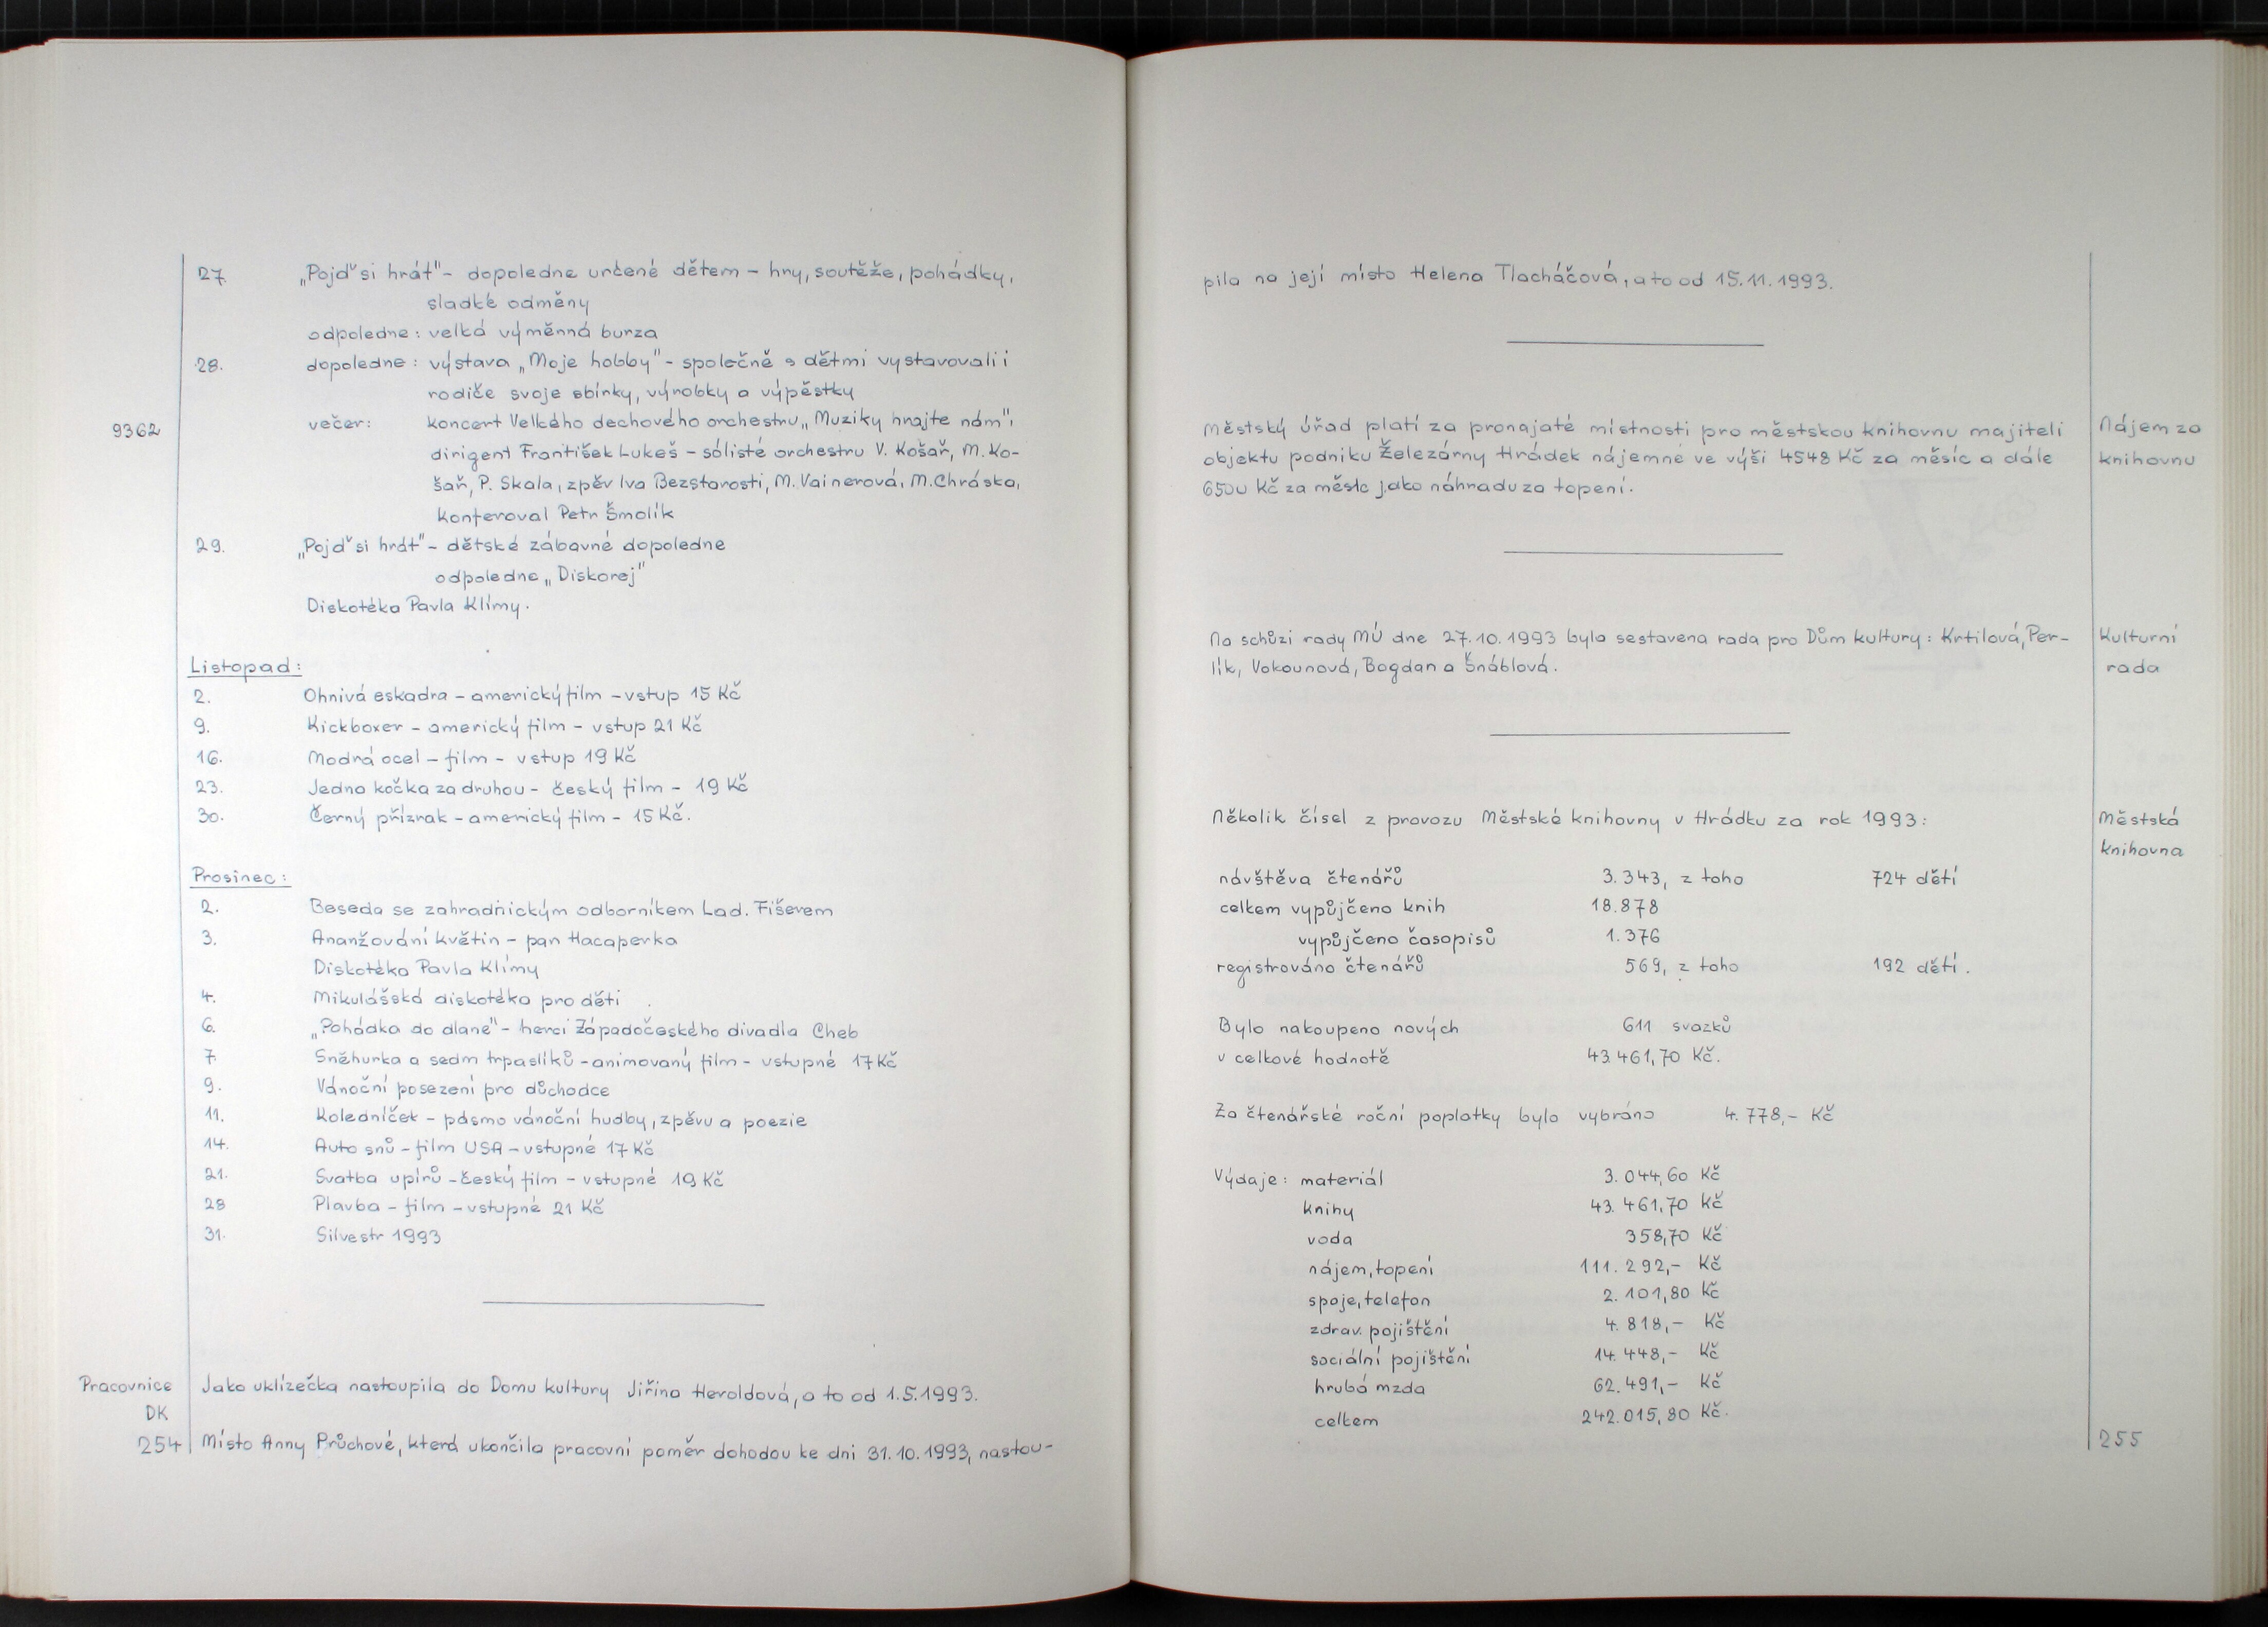 27. „Pojď si hrát" - dopoledne určené dětem - hry, soutěže, pohádky,
sladké odměny
odpoledne: velká výměnná burza
28. dopoledne: výstava „Moje hobby" - společně s dětmi vystavovali i
rodiče svoje sbírky, výrobky a výpěstky
9362 večer: koncert Velkého dechového orchestru „Muziky hrajte nám",
dirigent František Lukeš - sólisté orchestru V. Košař, M. Ko-
šař, P. Skala, zpěv Iva Bezstarosti, M. Vainerová, M. Chráska,
konferoval Petr Šmolík
29. „Pojď si hrát" - dětské zábavné dopoledne
odpoledne „Diskorej"
Diskotéka Pavla Klímy.
Listopad:
2. Ohnivá eskadra - americký film - vstup 15 Kč
9. Kickboxer - americký film - vstup 21 Kč
16. Modrá ocel - film - vstup 19 Kč
23. Jedna kočka za druhou - český film - 19 Kč
30. Černý příznak - americký film - 15 Kč.
Prosinec:
2. Beseda se zahradnickým odborníkem Lad. Fišerem
3. Aranžování květin - pan Hacaperka
Diskotéka Pavla Klímy
4. Mikulášská diskotéka pro děti
6. „Pohádka do dlaně" - herci Západočeského divadla Cheb
7. Sněhurka a sedm trpaslíků - animovaný film - vstupné 17 Kč
9. Vánoční posezení pro důchodce
11. Koledníček - pásmo vánoční hudby, zpěvu a poezie
14. Auto snů - film USA - vstupné 17 Kč
21. Svatba upírů - český film - vstupné 19 Kč
28 Plavba - film - vstupné 21 Kč
31. Silvestr 1993
Pracovnice Jako uklízečka nastoupila do Domu kultury Jiřina Heroldová, a to od 1.5.1993.
DK
254 Místo Anny Průchové, která ukončila pracovní poměr dohodou ke dni 31.10.1993, nastou-
pila na její místo Helena Tlacháčová, a to od 15.11.1993.
Městský úřad platí za pronajaté místnosti pro městskou knihovnu majiteli Nájem za
objektu podniku Železárny Hrádek nájemné ve výši 4548 Kč za měsíc a dále knihovnu
6500 Kč za měsíc jako náhradu za topení.
Na schůzi rady MÚ dne 27.10.1993 byla sestavena rada pro Dům kultury: Krtilová, Per- Kulturní
lík, Vokounová, Bogdan a Šnáblová. rada
Několik čísel z provozu Městské knihovny v Hrádku za rok 1993: Městská
knihovna
návštěva čtenářů 3.343, z toho 724 dětí
celkem vypůjčeno knih 18.878
vypůjčeno časopisů 1.376
registrováno čtenářů 569, z toho 192 dětí.
Bylo nakoupeno nových 611 svazků
v celkové hodnotě 43 461,70 Kč.
Za čtenářské roční poplatky bylo vybráno 4.778,- Kč
Výdaje: materiál 3.044,60 Kč
knihy 43.461,70 Kč
voda 358,70 Kč
nájem, topení 111.292,- Kč
spoje, telefon 2.101,80 Kč
zdrav. pojištění 4.818,- Kč
sociální pojištění 14.448,- Kč
hrubá mzda 62.491,- Kč
celkem 242.015,80 Kč.
255